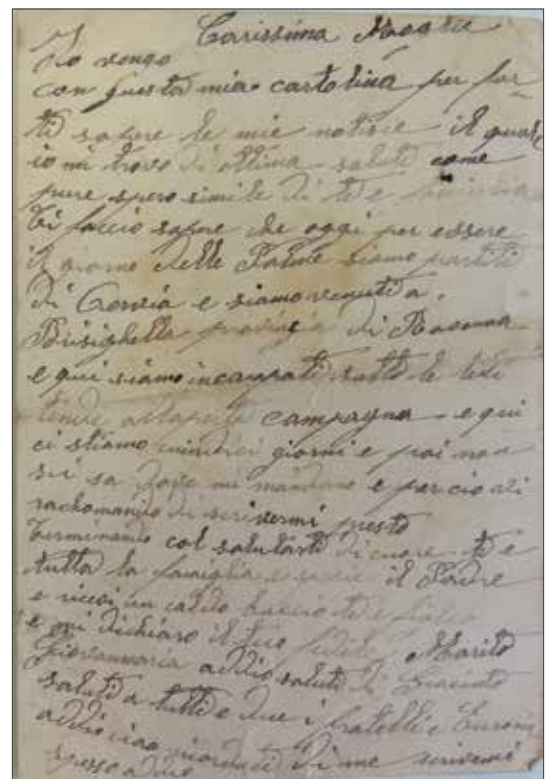 Carissima Moglie
Io vengo
con questa mia cartolina per far
ti sapere le mie notisie il quale
io mi trovo di ottima saluti come
pure spero simile di te e famiglia
ti faccio sapere che oggi per essere
il giorno delle Palme siamo partiti
di e siamo venuti a
Brisighella provincia di Ravenna
e qui siamo incampati sotto le
tende allaperta campagna e qui
ci stiamo giorni e poi non
si sa dove mi mandano e per cio ti
rachomando di scrivermi presto
Terminando col salutarti di cuore te e
tutta la famiglia e il Padre
e ricevi un caldo bacio te e
e mi dichiaro il tuo fedele Marito
Giovanmaria addio saluti di
saluti a tutti e due i fratelli e
addio ciao ricordati di me scrivemi
spesso addio